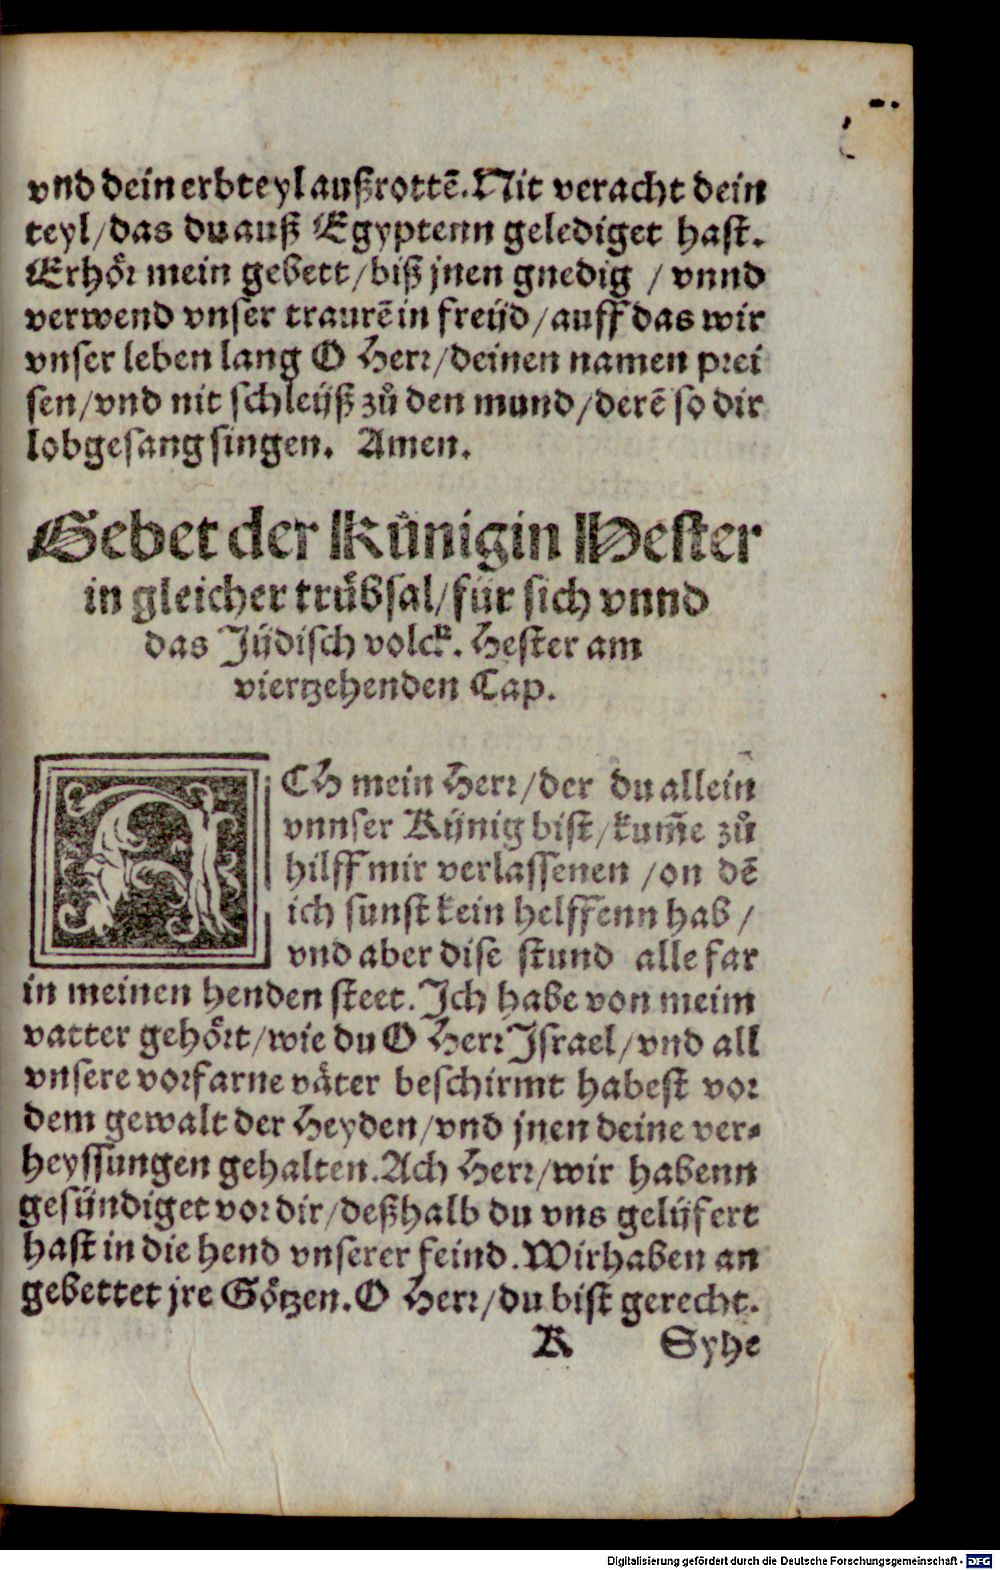 vnd dein erbteyl außrottē. Nit veracht dein
teyl/das du auß Egyptenn gelediget hast.
Erhoͤr mein gebett/biß jnen gnedig / vnnd
verwend vnser traurē in freijd/auff das wir
vnser leben lang O Herr/deinen namen prei
sen/vnd nit schleijß zuͦ den mund/derē so dir
lobgesang singen. Amen.
Gebet der Kuͤnigin Hester
in gleicher truͤbsal/fuͤr sich vnnd
das Jüdisch volck. Hester am
viertzehenden Cap.
ACH mein Herr/der du allein
vnnser Künig bist/kum̄e zuͦ
hilff mir verlassenen /on dē
ich sunst kein helffenn hab /
vnd aber dise stund alle far
in meinen henden steet. Ich habe von meim
vatter gehoͤrt/wie du O Herr Israel/vnd all
vnsere vorfarne väter beschirmt habest vor
dem gewalt der Heyden/vnd jnen deine ver⸗
heyssungen gehalten. Ach Herr/wir habenn
gesündiget vor dir/deßhalb du vns gelijfert
hast in die hend vnserer feind. Wir haben an
gebettet jre Goͤtzen. O Herr/du bist gerecht.
K Syhe
Digitalisierung gefördert durch die Deutsche Forschungsgemeinschaft - DFG